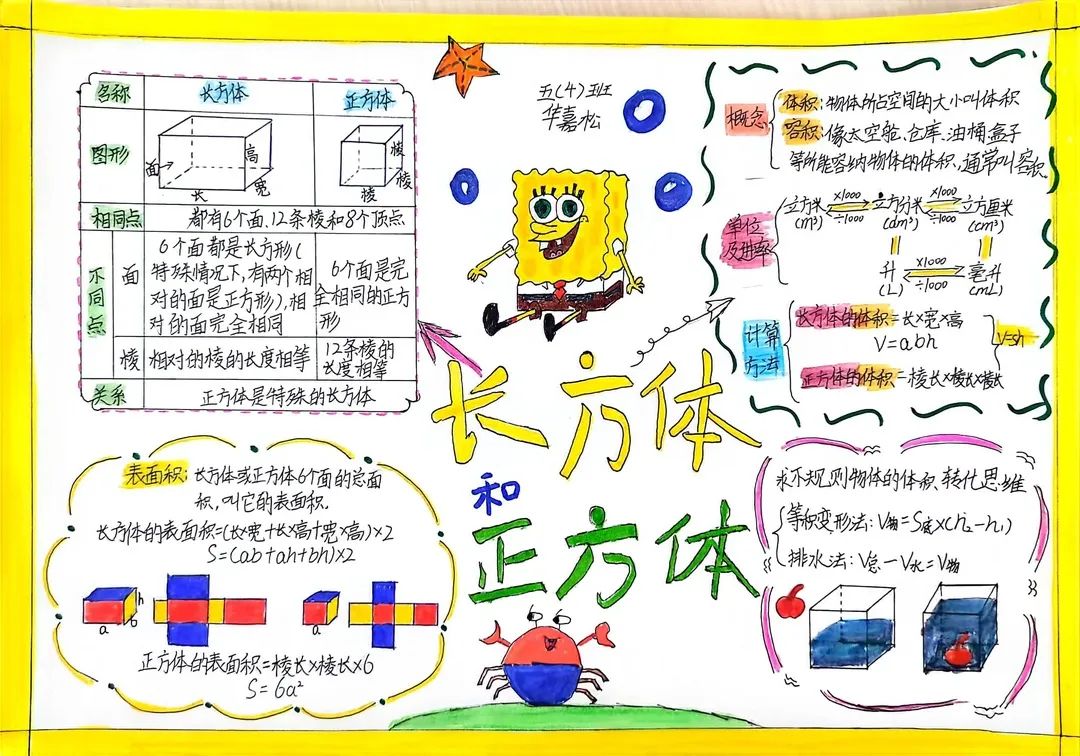 名称 长方体 正方体
图形 面 长 宽 高 棱 棱 棱
相同点 都有6个面、12条棱和8个顶点
不同点
面
6个面都是长方形(
特殊情况下,有两个相
对的面是正方形),相
对的面完全相同
6个面是完
全相同的正方
形
棱 相对的棱的长度相等
12条棱的
长度相等
关系 正方体是特殊的长方体
五(4)班
华嘉松
概念
体积:物体所占空间的大小叫体积
容积:像太空舱、仓库、油桶、盒子
等所能容纳物体的体积,通常叫容积。
单位
及进率
立方米 ×1000 ÷1000 立方分米 ×1000 ÷1000 立方厘米
(m³) (dm³) (cm³)
升 ×1000 ÷1000 毫升
(L) (mL)
计算
方法
长方体的体积=长×宽×高
V=abh
正方体的体积=棱长×棱长×棱长
V=sh
长方体
和
正方体
表面积:长方体或正方体6个面的总面
积,叫它的表面积.
长方体的表面积=(长×宽+长×高+宽×高)×2
S=(ab+ah+bh)×2
a b h
a
正方体的表面积=棱长×棱长×6
S=6a²
求不规则物体的体积 转化思维
等积变形法:V物=S底×(h₂-h₁)
排水法:V总-V水=V物